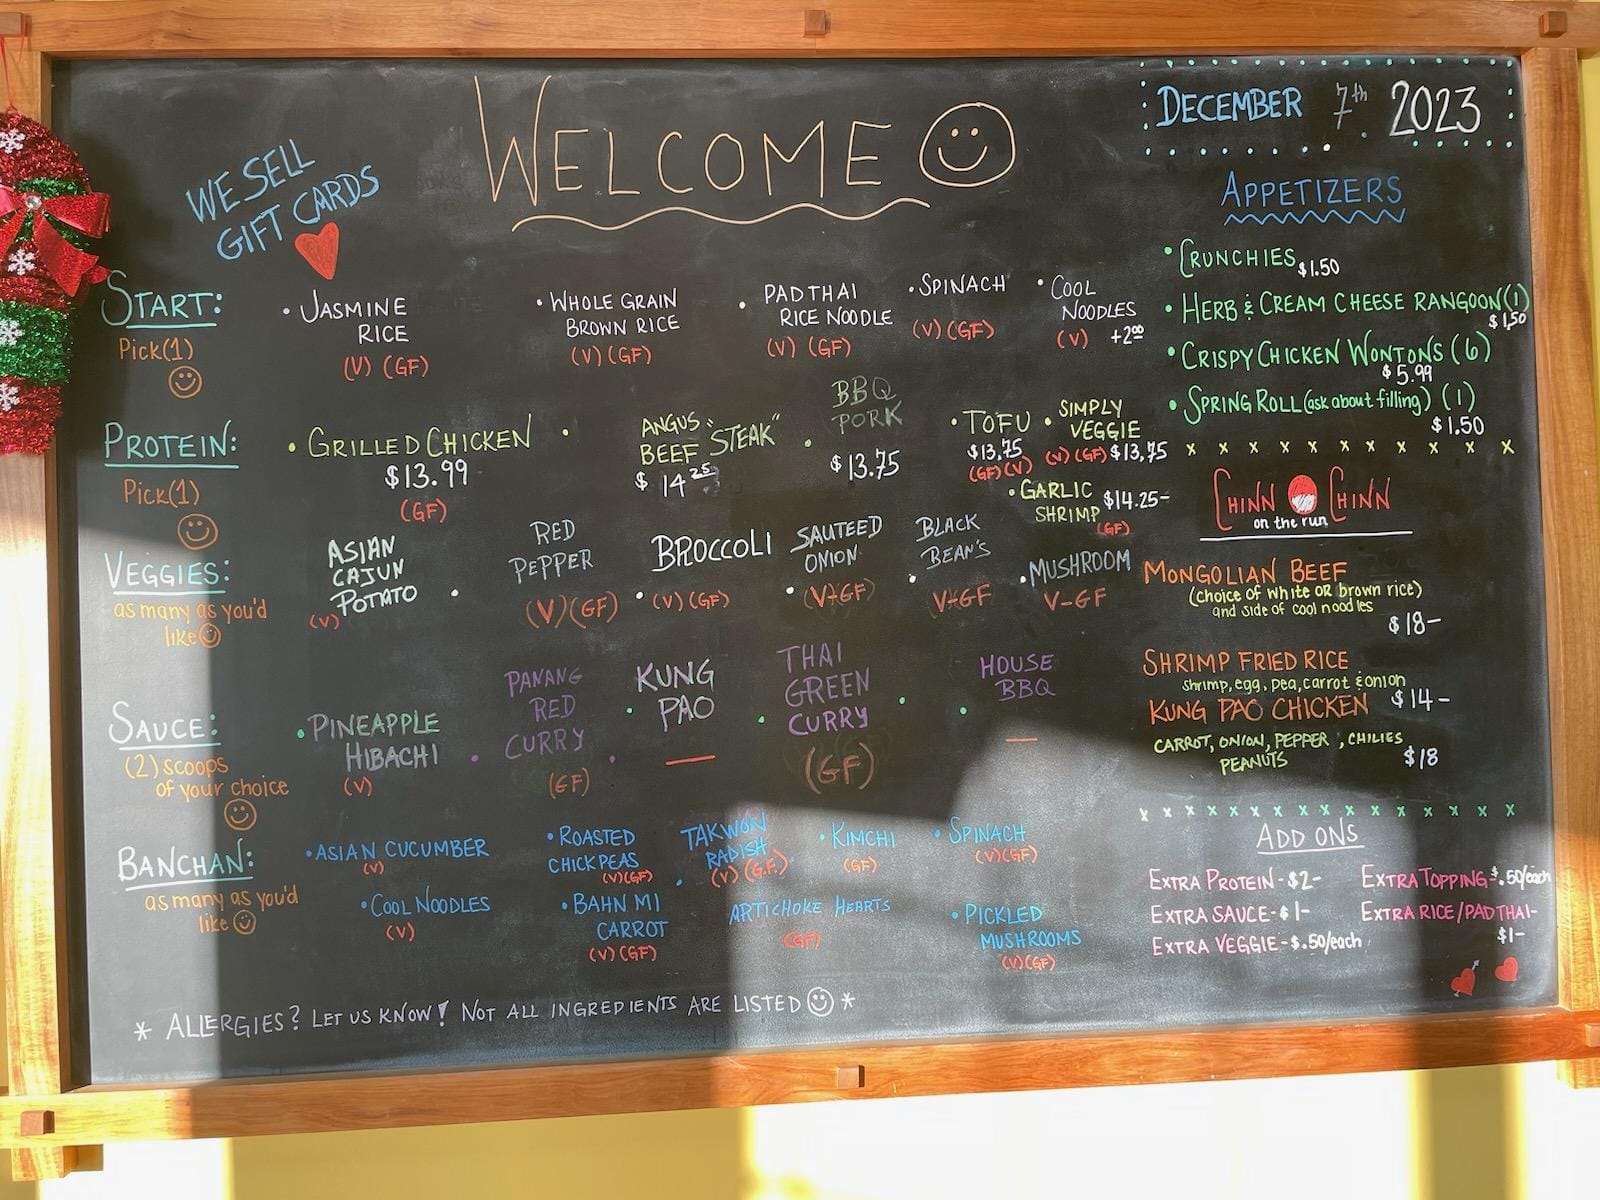 WELCOME
DECEMBER 7th 2023
WE SELL
GIFT CARDS
START:
Pick(1)
• JASMINE
RICE
(V) (GF)
• WHOLE GRAIN
BROWN RICE
(V) (GF)
• PAD THAI
RICE NOODLE
(V) (GF)
• SPINACH
(V) (GF)
• COOL
NOODLES
(V) +2.00
PROTEIN:
Pick(1)
• GRILLED CHICKEN
$13.99
(GF)
• ANGUS
BEEF "STEAK"
$14.25
• BBQ
PORK
$13.75
• TOFU
$13.75
(GF)(V)
• SIMPLY
VEGGIE
(V) (GF) $13.75
• GARLIC
SHRIMP $14.25-
(GF)
VEGGIES:
as many as you'd
like
ASIAN
CAJUN
POTATO
(V)
• RED
PEPPER
(V)(GF)
• BROCCOLI
(V) (GF)
• SAUTEED
ONION
(V+GF)
• BLACK
BEAN'S
V+GF
• MUSHROOM
V-GF
SAUCE:
(2) scoops
of your choice
• PINEAPPLE
HIBACHI
(V)
• PANANG
RED
CURRY
(GF)
• KUNG
PAO
—
• THAI
GREEN
CURRY
(GF)
• HOUSE
BBQ
—
BANCHAN:
as many as you'd
like
• ASIAN CUCUMBER
(V)
• ROASTED
CHICKPEAS
(V)(GF)
• TAKWON
RADISH
(V) (G.F.)
• KIMCHI
(GF)
• SPINACH
(V)(GF)
• COOL NOODLES
(V)
• BAHN MI
CARROT
(V) (GF)
ARTICHOKE HEARTS
(GF)
• PICKLED
MUSHROOMS
(V)(GF)
* ALLERGIES? LET US KNOW! NOT ALL INGREDIENTS ARE LISTED *
APPETIZERS
• CRUNCHIES $1.50
• HERB & CREAM CHEESE RANGOON (1)
$1.50
• CRISPY CHICKEN WONTONS (6)
$5.99
• SPRING ROLL (ask about filling) (1)
$1.50
x x x x x x x x x x x x
CHINN CHINN
on the run
MONGOLIAN BEEF
(choice of white OR brown rice)
and side of cool noodles
$18-
SHRIMP FRIED RICE
shrimp, egg, pea, carrot & onion
$14-
KUNG PAO CHICKEN
CARROT, ONION, PEPPER, CHILIES
PEANUTS $18
x x x x x x x x x x x x x x x x x
ADD ONS
EXTRA PROTEIN - $2-
EXTRA SAUCE - $1-
EXTRA VEGGIE - $.50/each
EXTRA TOPPING - $.50/each
EXTRA RICE/PAD THAI-
$1-